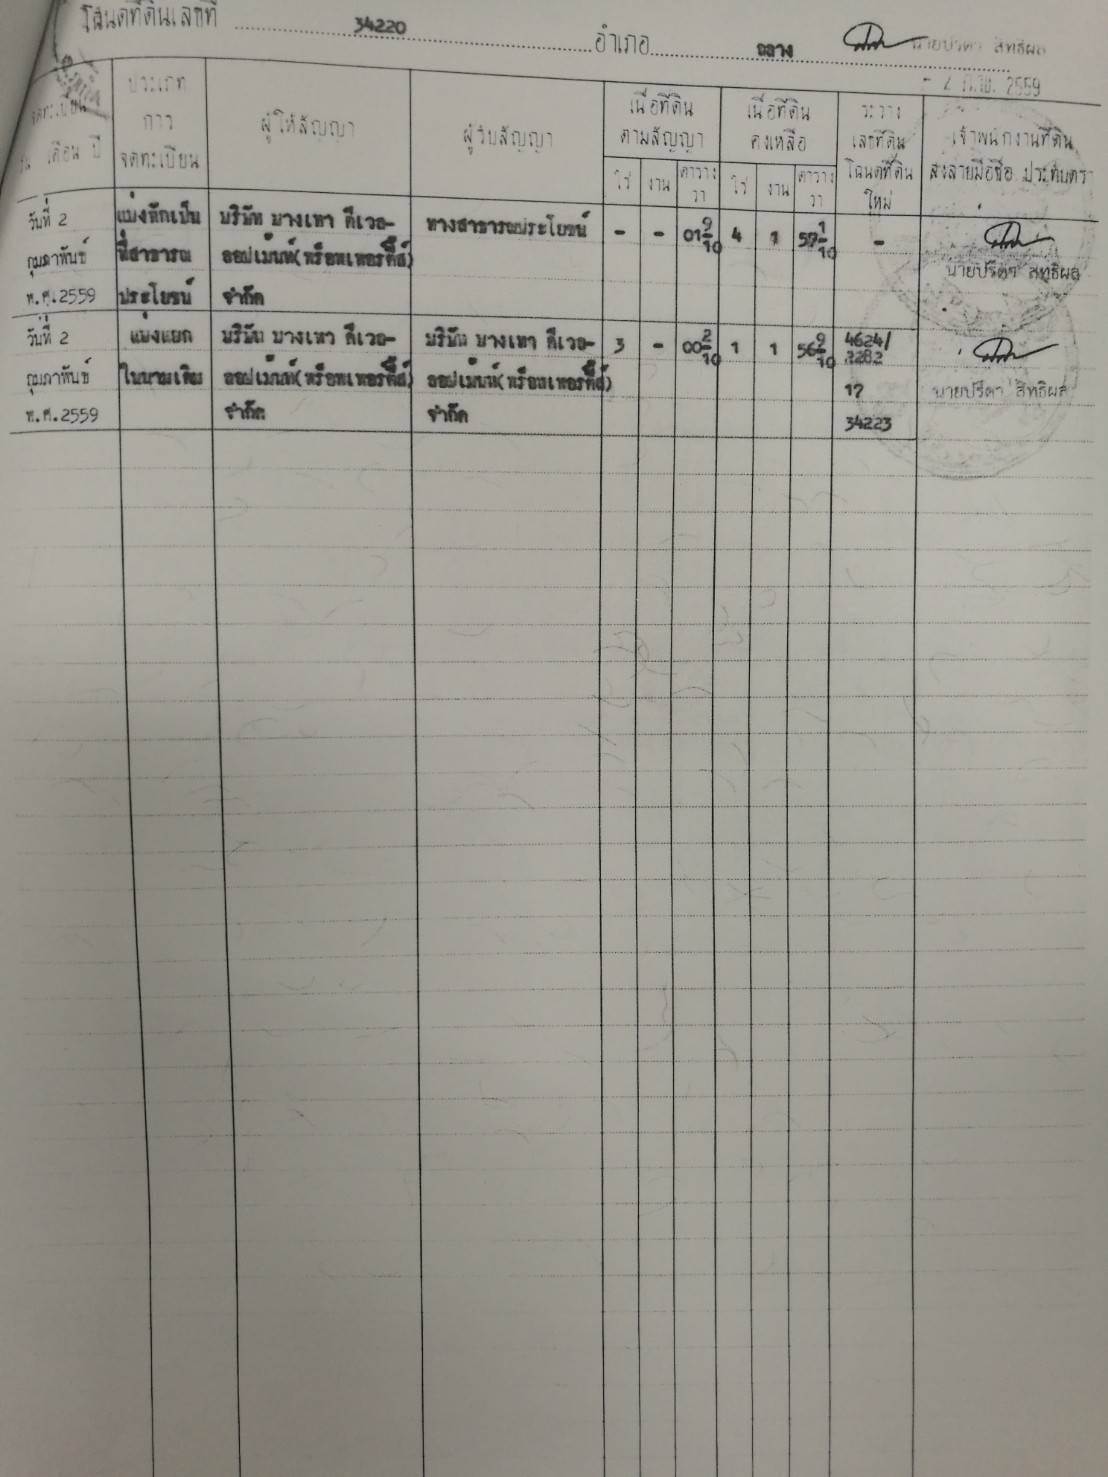 โฉนดที่ดินเลขที่ 34220 อำเภอ ถลาง นายปรีดา สิทธิผล
- 2 ก.พ. 2559
จดทะเบียน
เดือน ปี
ประเภท
การ
จดทะเบียน
ผู้ให้สัญญา
ผู้รับสัญญา
เนื้อที่ดิน
ตามสัญญา
ไร่ งาน ตาราง
วา
เนื้อที่ดิน
คงเหลือ
ไร่ งาน ตาราง
วา
ระวาง
เลขที่ดิน
โฉนดที่ดิน
ใหม่
เจ้าพนักงานที่ดิน
ลงลายมือชื่อ ประทับตรา
วันที่ 2 แบ่งหักเป็น บริษัท บางเทา ดีเวล- ทางสาธารณประโยชน์ - - 01 9/10 4 1 57 1/10 -
กุมภาพันธ์ ที่สาธารณ ลอปเม้นท์(พร็อพเพอร์ตี้ส์) นายปรีดา สิทธิผล
พ.ศ.2559 ประโยชน์ จำกัด
วันที่ 2 แบ่งแยก บริษัท บางเทา ดีเวล- บริษัท บางเทา ดีเวล- 3 - 00 2/10 1 1 56 9/10 4624/
7282
กุมภาพันธ์ ในนามเดิม ลอปเม้นท์(พร็อพเพอร์ตี้ส์) ลอปเม้นท์(พร็อพเพอร์ตี้ส์) 17 นายปรีดา สิทธิผล
พ.ศ.2559 จำกัด จำกัด 34223